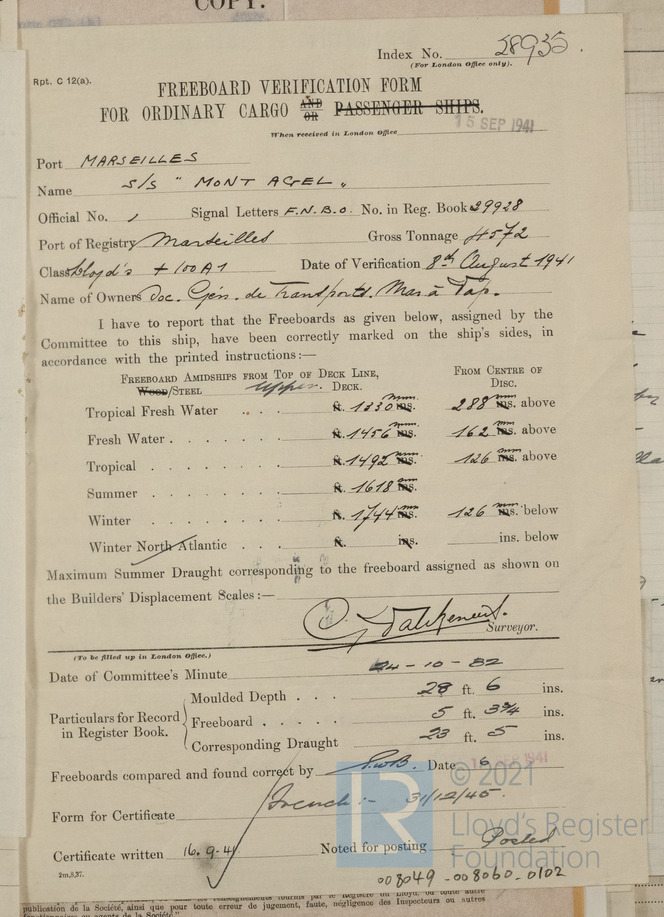 COPY.
Index No. 28935.
(For London Office only).
Rpt. C 12(a).
FREEBOARD VERIFICATION FORM
FOR ORDINARY CARGO AND OR PASSENGER SHIPS.
15 SEP 1941
When received in London Office
Port MARSEILLES
Name S/S "MONT AGEL"
Official No. / Signal Letters F.N.B.O. No. in Reg. Book 29928
Port of Registry Marseilles Gross Tonnage 4572
Class Lloyd's + 100A1 Date of Verification 8th August 1941
Name of Owners Soc. Gén. de Transports. Mar. à Vap.
I have to report that the Freeboards as given below, assigned by the
Committee to this ship, have been correctly marked on the ship's sides, in
accordance with the printed instructions:—
FREEBOARD AMIDSHIPS FROM TOP OF DECK LINE, FROM CENTRE OF
WOOD/STEEL Upper. DECK. DISC.
Tropical Fresh Water . . . ft. 1330 mm ins. 288 mm ins. above
Fresh Water . . . . . . ft. 1456 mm ins. 162 mm ins. above
Tropical . . . . . . . ft. 1492 mm ins. 126 mm ins. above
Summer . . . . . . . ft. 1618 mm ins.
Winter . . . . . . . ft. 1744 mm ins. 126 mm ins. below
Winter North Atlantic . . . ft. ins. ins. below
Maximum Summer Draught corresponding to the freeboard assigned as shown on
the Builders' Displacement Scales:—
Surveyor.
(To be filled up in London Office.)
Date of Committee's Minute 24-10-82
Particulars for Record in Register Book.
Moulded Depth . . . 28 ft. 6 ins.
Freeboard . . . . . 5 ft. 3¾ ins.
Corresponding Draught 23 ft. 5 ins.
Freeboards compared and found correct by Date 16 SEP 1941
Form for Certificate French:- 31/12/45.
Certificate written 16.9.41 Noted for posting Posted
2m,8,37.
© 2021
Lloyd's Register
Foundation
008049-008060-0102
publication de la Société, ainsi que pour toute erreur de jugement, faute, négligence des Inspecteurs ou autres